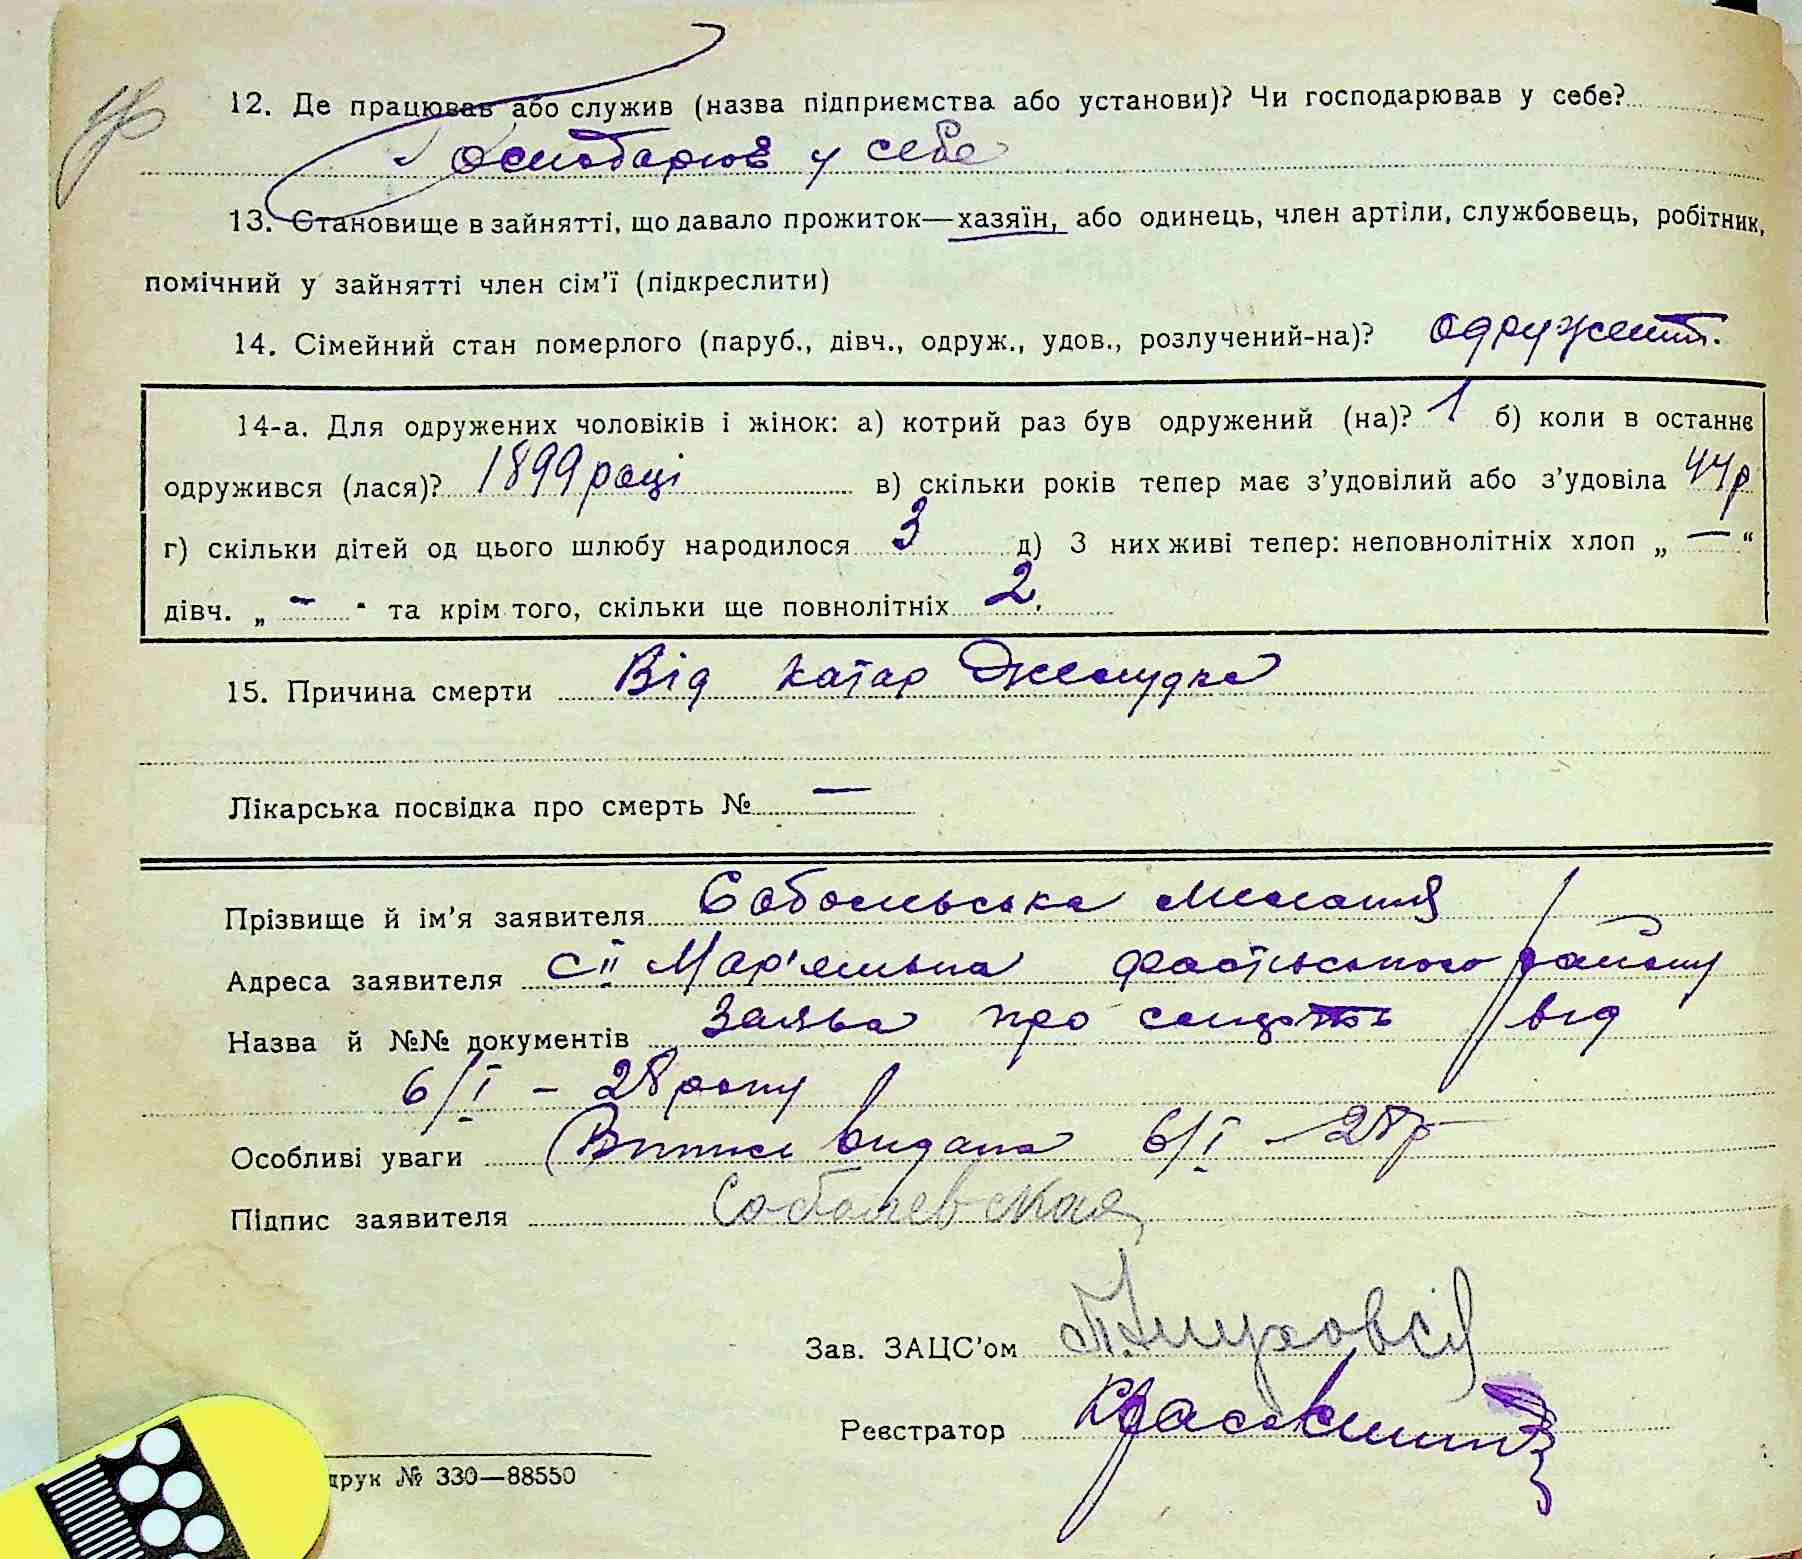 12. Де працював або служив (назва підприємства або установи)? Чи господарював у себе?
Господарюв у себе
13. Становище в зайнятті, що давало прожиток—хазяїн, або одинець, член артіли, службовець, робітник,
помічний у зайнятті член сім'ї (підкреслити)
14. Сімейний стан померлого (паруб., дівч., одруж., удов., розлучений-на)? одружений.
14-а. Для одружених чоловіків і жінок: а) котрий раз був одружений (на)? 1 б) коли в останнє
одружився (лася)? 1899 році в) скільки років тепер має з'удовілий або з'удовіла 44 р
г) скільки дітей од цього шлюбу народилося 3 д) З них живі тепер: неповнолітніх хлоп „ — “
дівч. „ — “ та крім того, скільки ще повнолітніх 2.
15. Причина смерти Від катар Желудка
Лікарська посвідка про смерть № —
Прізвище й ім'я заявителя Собольська Меланія
Адреса заявителя Мар'янівка Фастівського району
Назва й №№ документів Заява про смерть від
6/I – 28 року
Особливі уваги Витпис видана 6/I – 28 р
Підпис заявителя Соболевская
Зав. ЗАЦС'ом
Реєстратор
друк № 330—88550